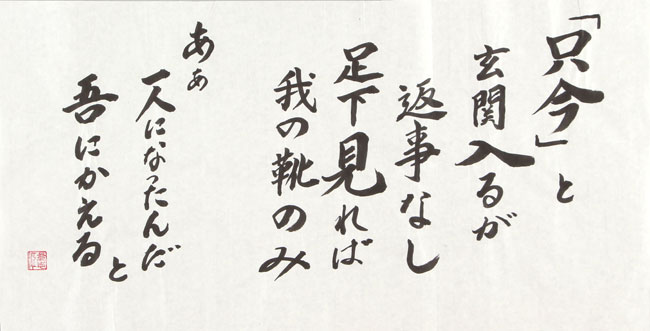 「只今」と
玄関入るが
返事なし
足下見れば
我の靴のみ
あぁ
一人になったんだ
吾にかえる
と